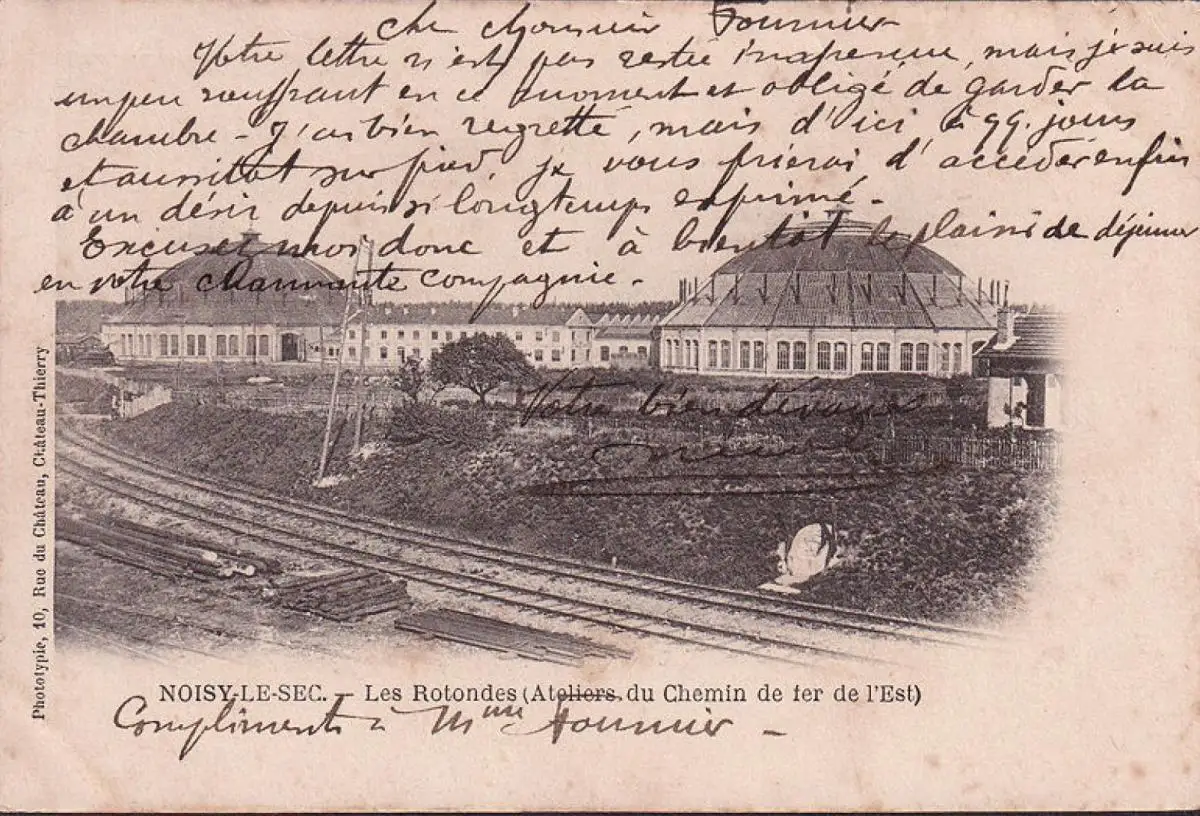 Cher Monsieur Fournier
Votre lettre n'est pas restée inaperçue, mais je suis
un peu souffrant en ce moment et obligé de garder la
chambre – J'ai bien regretté, mais d'ici à qq. jours
et aussitôt sur pied, je vous prierai d'accéder enfin
à un désir depuis si longtemps exprimé –
Excusez moi donc et à bientôt le plaisir de déjeuner
en votre charmante compagnie. –
Votre bien dévoué
Phototypie, 10, Rue du Château, Château-Thierry
NOISY-LE-SEC. – Les Rotondes (Ateliers du Chemin de fer de l'Est)
Compliments à Mme Fournier –